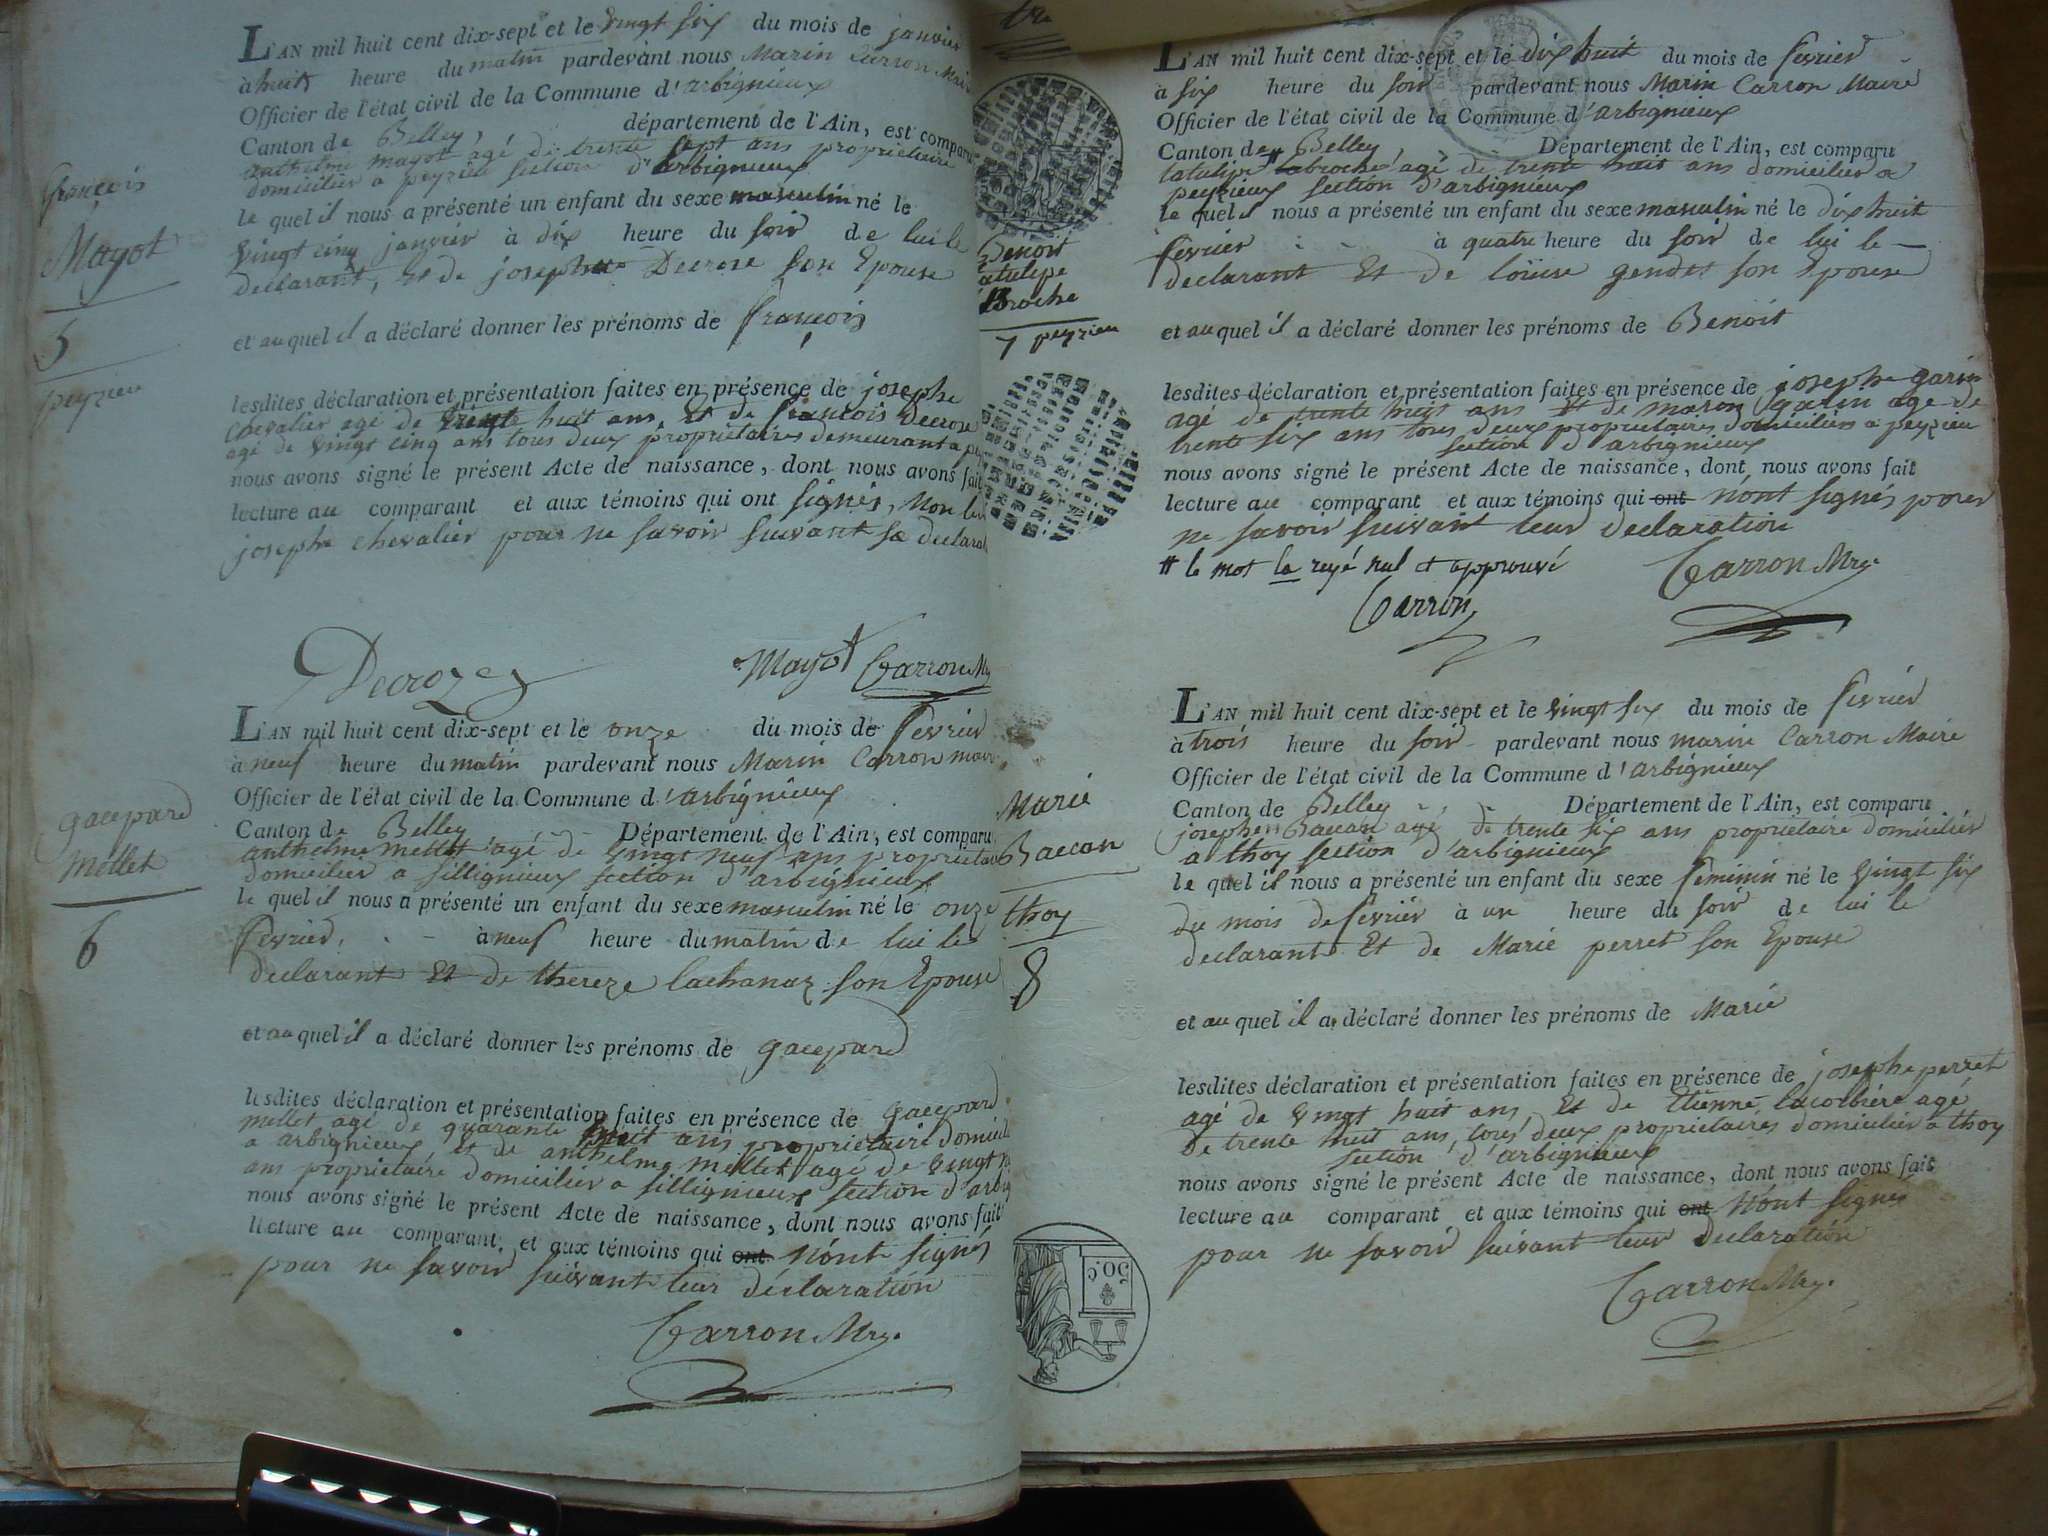 L'AN mil huit cent dix-sept et le vingt six du mois de janvier
à huit heure du matin pardevant nous Marin Carron Mair
Officier de l'état civil de la Commune d'arbignieux
Canton de Belley, département de l'Ain, est comparu
anthelme mayot agé de trente sept ans proprietaire
domicilier a peyzieu section d'arbignieux
le quel il nous a présenté un enfant du sexe masculin né le
vingt cinq janvier à dix heure du soir de lui le
declarant, et de josephte Decrose son Epouse
et au quel il a déclaré donner les prénoms de françois
lesdites déclaration et présentation faites en présence de josephe
chevalier agé de trente huit ans, Et de françois Decrose
agé de vingt cinq ans tous deux proprietaires demeurant a
nous avons signé le présent Acte de naissance, dont nous avons fait
lecture au comparant et aux témoins qui ont signés, Non
josephe chevalier pour ne savoir suivant sa declara
françois
Mayot
5
peyzieu
Decroze Mayot Carron Mre
L'AN mil huit cent dix-sept et le onze du mois de fevrier
à neuf heure du matin pardevant nous Marin Carron mair
Officier de l'état civil de la Commune d'arbignieux
Canton de Belley Département de l'Ain, est comparu
anthelme Mellet agé de vingt neuf ans proprietair
domicilier a sillignieux section d'arbignieux
le quel il nous a présenté un enfant du sexe masculin né le onze
fevrier à neuf heure du matin de lui le
declarant Et de thereze lachanaz son Epouse
et au quel il a déclaré donner les prénoms de gaspard
lesdites déclaration et présentation faites en présence de gaspard
mellet agé de quarante huit ans proprietaire domicili
a arbignieux et de anthelme mellet agé de vingt
ans proprietaire domicilier a sillignieux section d'arbig
nous avons signé le présent Acte de naissance, dont nous avons fait
lecture au comparant et aux témoins qui ont n'ont signés
pour ne savoir suivant leur déclaration
gaspard
Mellet
6
Carron Mre.
L'AN mil huit cent dix-sept et le dix huit du mois de fevrier
à six heure du soir pardevant nous Marin Carron Maire
Officier de l'état civil de la Commune d'arbignieux
Canton de Belley Département de l'Ain, est comparu
latulipe labroche agé de trente huit ans domicilier a
peyzieux section d'arbignieux
le quel il nous a présenté un enfant du sexe masculin né le dix huit
fevrier à quatre heure du soir de lui le
declarant Et de loüise gendet son Epouse
et au quel il a déclaré donner les prénoms de Benoit
lesdites déclaration et présentation faites en présence de josephe garin
agé de trente huit ans Et de marin galin agé de
trente six ans tous deux proprietaires domicilier a peyzieu
section d'arbignieux
nous avons signé le présent Acte de naissance, dont nous avons fait
lecture au comparant et aux témoins qui ont n'ont signés pour
ne savoir suivant leur declaration
# le mot la rayé nul et approuvé
Carron Carron Mre.
Benoit
latulipe
Broche
7 peyzieu
L'AN mil huit cent dix-sept et le vingt six du mois de fevrier
à trois heure du soir pardevant nous marin Carron Maire
Officier de l'état civil de la Commune d'arbignieux
Canton de Belley Département de l'Ain, est comparu
josephe Baccon agé de trente six ans proprietaire domicilier
a thoy section d'arbignieux
le quel il nous a présenté un enfant du sexe feminin né le vingt six
du mois de fevrier à un heure du soir de lui le
declarant Et de Marie perret son Epouse
et au quel il a déclaré donner les prénoms de Marie
lesdites déclaration et présentation faites en présence de josephe perret
agé de vingt huit ans Et de Etienne lacorbière agé
de trente huit ans, tous deux proprietaires domicilier a thoy
section d'arbignieux
nous avons signé le présent Acte de naissance, dont nous avons fait
lecture au comparant et aux témoins qui ont n'ont signés
pour ne savoir suivant leur declaration
Carron Mre.
Marie
Baccon
thoy
8
50.c